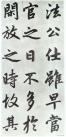 法公仕雖早當
官之日不多於
開放之時故其